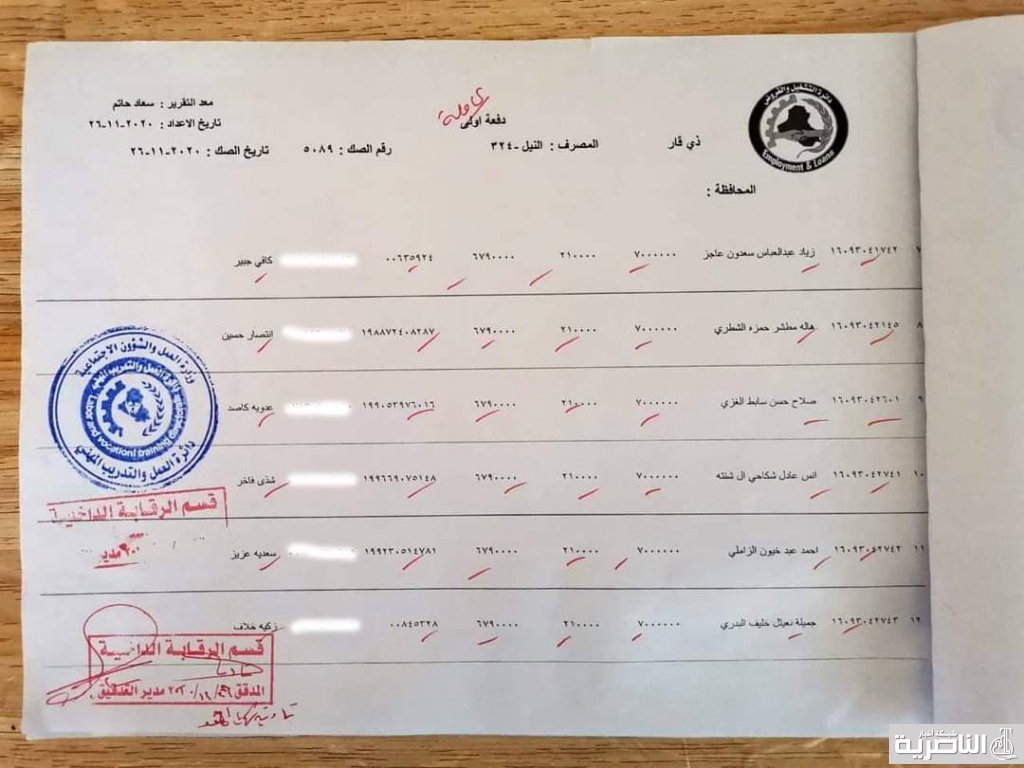 معد التقرير : سعاد حاتم
تاريخ الاعداد : ٢٠٢٠-١١-٢٦
دفعة اولى
كاملة
ذي قار
المصرف : النيل -٣٢٤
رقم الصك : ٥٠٨٩
تاريخ الصك : ٢٠٢٠-١١-٢٦
المحافظة :
دائرة التشغيل والقروض
Employment & Loans
٧ ١٦٠٩٣٠٤١٧٤٢ زياد عبدالعباس سعدون عاجز ٧٠٠٠٠٠٠ ٢١٠٠٠٠ ٦٧٩٠٠٠٠ ٠٠٦٣٥٩٢٤ كافي جبير
٨ ١٦٠٩٣٠٤٢١٤٥ هاله مطشر حمزه الشطري ٧٠٠٠٠٠٠ ٢١٠٠٠٠ ٦٧٩٠٠٠٠ ١٩٨٨٧٢٤٠٨٢٨٧ انتصار حسين
٩ ١٦٠٩٣٠٤٢٦٠١ صلاح حسن سابط الغزي ٧٠٠٠٠٠٠ ٢١٠٠٠٠ ٦٧٩٠٠٠٠ ١٩٩٠٥٣٩٧٦٠١٦ عدويه كاصد
١٠ ١٦٠٩٣٠٤٢٧٤١ انس عادل شكاحي ال شنته ٧٠٠٠٠٠٠ ٢١٠٠٠٠ ٦٧٩٠٠٠٠ ١٩٩٦٦٩٠٧٥١٤٨ شذى فاخر
١١ ١٦٠٩٣٠٤٢٧٤٢ احمد عبد خيون الزاملي ٧٠٠٠٠٠٠ ٢١٠٠٠٠ ٦٧٩٠٠٠٠ ١٩٩٢٣٠٥١٤٧٨١ سعديه عزيز
١٢ ١٦٠٩٣٠٤٢٧٤٣ جميلة نعيثل خليف البدري ٧٠٠٠٠٠٠ ٢١٠٠٠٠ ٦٧٩٠٠٠٠ ٠٠٨٤٥٣٢٨ زكيه خلاف
وزارة العمل والشؤون الاجتماعية
دائرة العمل والتدريب المهني
Labor and vocational training directorate
قسم الرقابة الداخلية
مدير
قسم الرقابة الداخلية
المدقق مدير التدقيق
شبكة أخبار
الناصرية